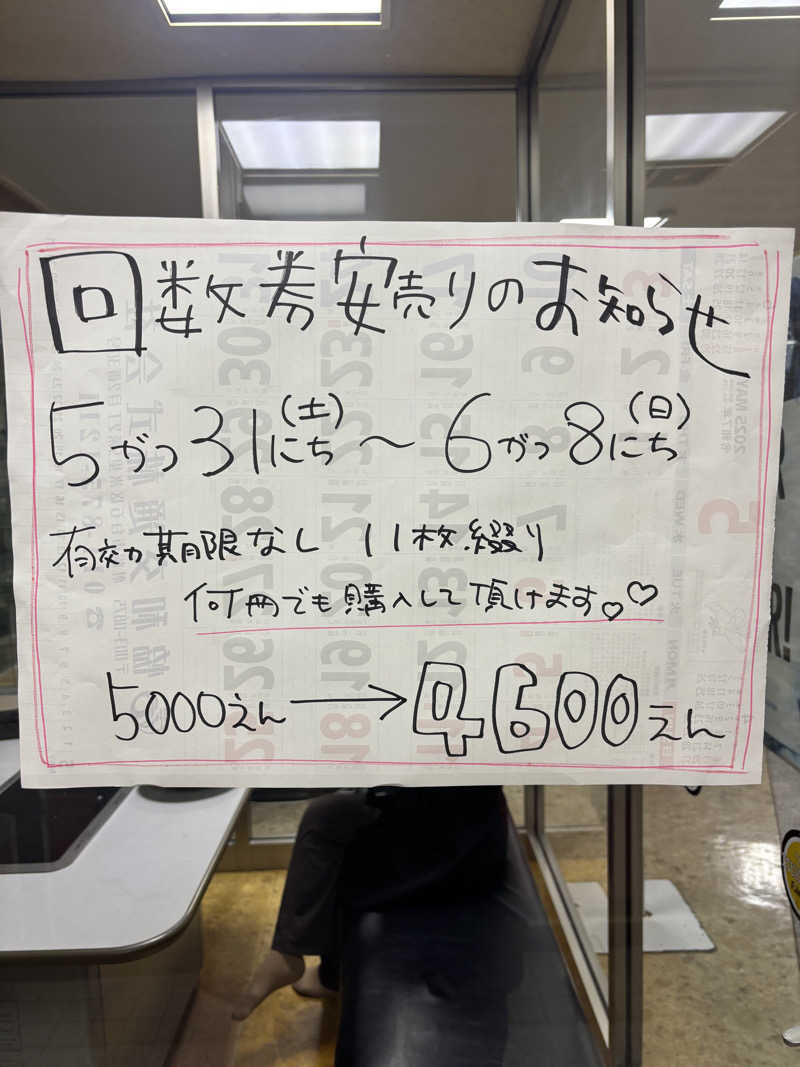 回数券安売りのお知らせ
5がつ31にち(土)〜6がつ8にち(日)
有効期限なし 11枚綴り
何冊でも購入して頂けます♡♡
5000えん→4600えん